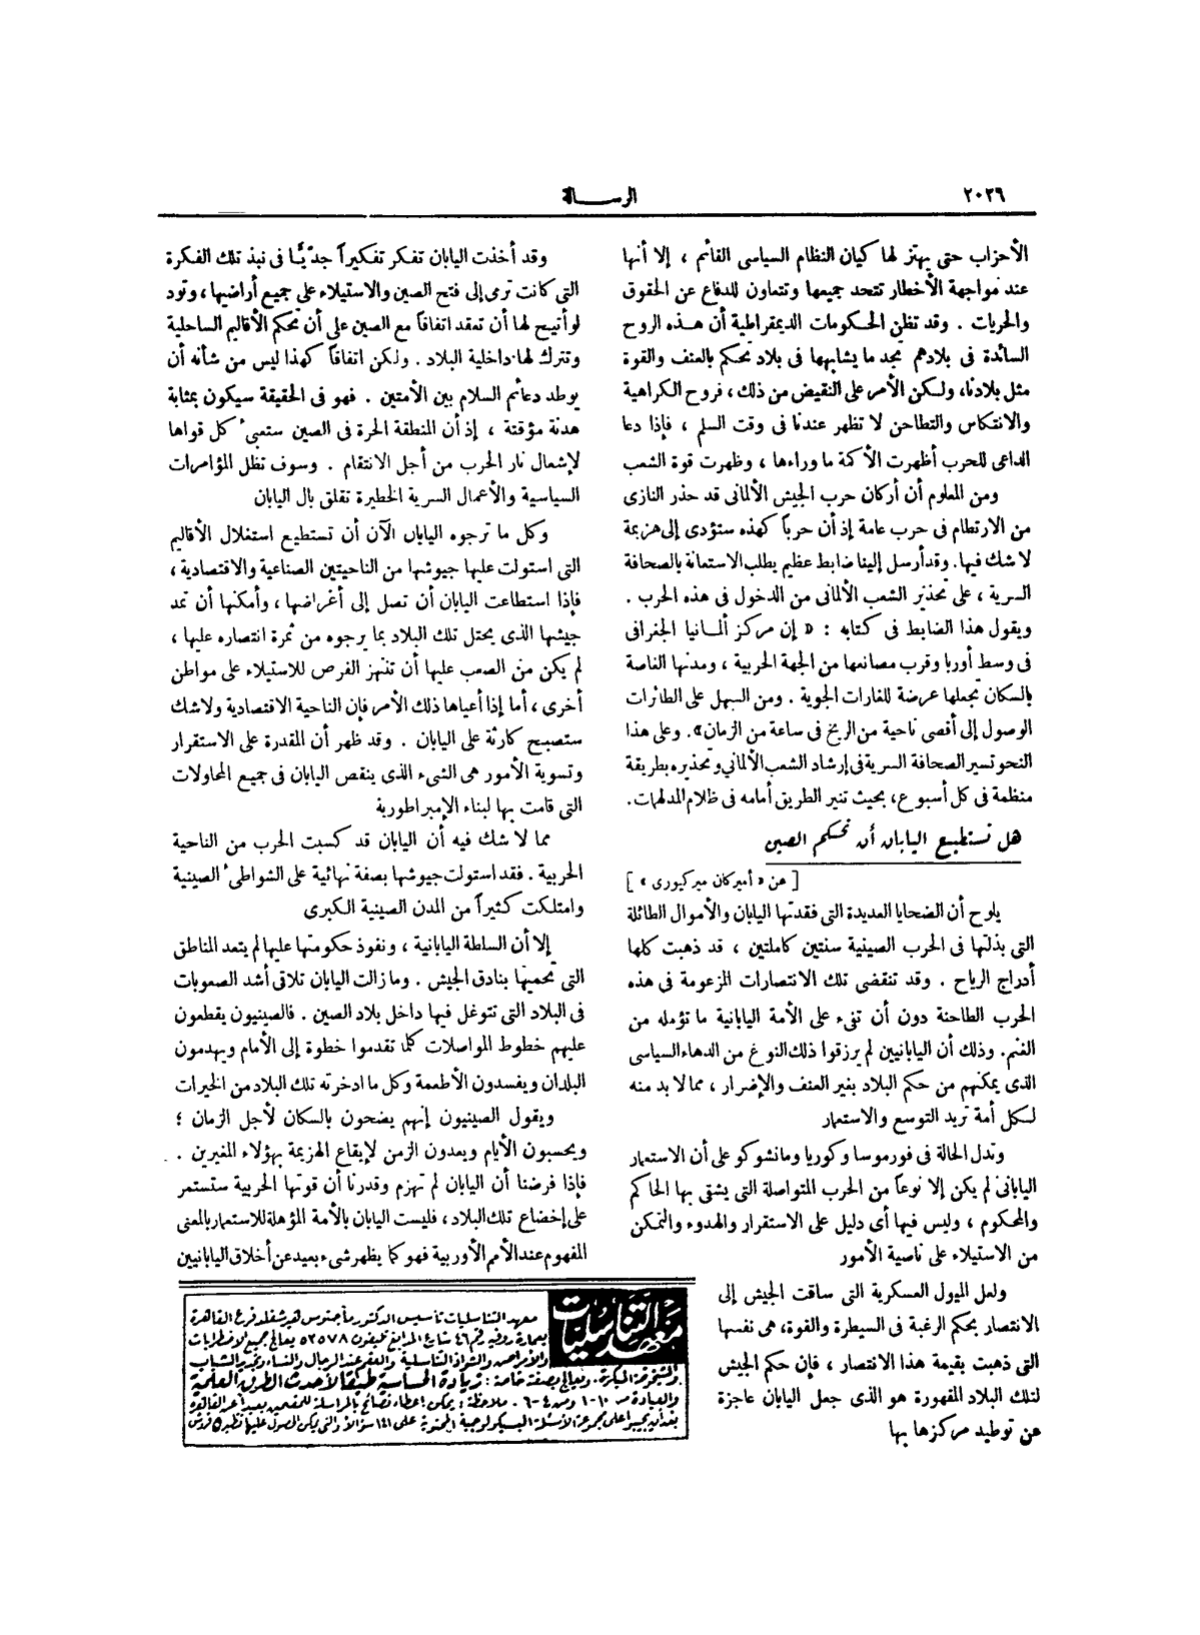 ٢٠٢٦
الرسالة
الأحزاب حتى يهتز لها كيان النظام السياسى القائم ، إلا أنها
عند مواجهة الأخطار تتحد جميعها وتتعاون للدفاع عن الحقوق
والحريات . وقد تظن الحكومات الديمقراطية أن هذه الروح
السائدة فى بلادهم تجد ما يشابهها فى بلاد تحكم بالعنف والقوة
مثل بلادنا، ولكن الأمر على النقيض من ذلك ، فروح الكراهية
والانتكاس والتطاحن لا تظهر عندنا فى وقت السلم ، فإذا دعا
الداعى للحرب أظهرت الأكمة ما وراءها ، وظهرت قوة الشعب
ومن المعلوم أن أركان حرب الجيش الألمانى قد حذر النازى
من الارتطام فى حرب عامة إذ أن حرباً كهذه ستؤدى إلى هزيمة
لا شك فيها. وقد أرسل إلينا ضابط عظيم يطلب الاستعانة بالصحافة
السرية ، على تحذير الشعب الألمانى من الدخول فى هذه الحرب .
ويقول هذا الضابط فى كتابه : « إن مركز ألمانيا الجغرافى
فى وسط أوربا وقرب مصانعها من الجهة الحربية ، ومدنها الغاصة
بالسكان تجعلها عرضة للغارات الجوية . ومن السهل على الطائرات
الوصول إلى أقصى ناحية من الريخ فى ساعة من الزمان». وعلى هذا
النحو تسير الصحافة السرية فى إرشاد الشعب الألمانى وتحذيره بطريقة
منظمة فى كل أسبوع، بحيث تنير الطريق أمامه فى ظلام المدلهمات.
هل تستطيع اليابان أن تحكم الصين
[ عن « أميركان ميركيورى » ]
يلوح أن الضحايا العديدة التى فقدتها اليابان والأموال الطائلة
التى بذلتها فى الحرب الصينية سنتين كاملتين ، قد ذهبت كلها
أدراج الرياح . وقد تنقضى تلك الانتصارات المزعومة فى هذه
الحرب الطاحنة دون أن تفىء على الأمة اليابانية ما تؤمله من
الغنم. وذلك أن اليابانيين لم يرزقوا ذلك النوع من الدهاء السياسى
الذى يمكنهم من حكم البلاد بغير العنف والإضرار ، مما لا بد منه
لكل أمة تريد التوسع والاستعمار
وتدل الحالة فى فورموسا وكوريا ومانشوكو على أن الاستعمار
اليابانى لم يكن إلا نوعاً من الحرب المتواصلة التى يشقى بها الحاكم
والمحكوم ، وليس فيها أى دليل على الاستقرار والهدوء والتمكن
من الاستيلاء على ناصية الأمور
ولعل الميول العسكرية التى ساقت الجيش إلى
الانتصار بحكم الرغبة فى السيطرة والقوة، هى نفسها
التى ذهبت بقيمة هذا الانتصار ، فإن حكم الجيش
لتلك البلاد المقهورة هو الذى جعل اليابان عاجزة
عن توطيد مركزها بها
وقد أخذت اليابان تفكر تفكيراً جدّيًّا فى نبذ تلك الفكرة
التى كانت ترمى إلى فتح الصين والاستيلاء على جميع أراضيها ، وتود
لو أتيح لها أن تعقد اتفاقاً مع الصين على أن تحكم الأقاليم الساحلية
وتترك لها داخلية البلاد . ولكن اتفاقاً كهذا ليس من شأنه أن
يوطد دعائم السلام بين الأمتين . فهو فى الحقيقة سيكون بمثابة
هدنة مؤقتة ، إذ أن المنطقة الحرة فى الصين ستعبىء كل قواها
لإشعال نار الحرب من أجل الانتقام . وسوف تظل المؤامرات
السياسية والأعمال السرية الخطيرة تقلق بال اليابان
وكل ما ترجوه اليابان الآن أن تستطيع استغلال الأقاليم
التى استولت عليها جيوشها من الناحيتين الصناعية والاقتصادية ،
فإذا استطاعت اليابان أن تصل إلى أغراضها ، وأمكنها أن تمد
جيشها الذى يحتل تلك البلاد بما يرجوه من ثمرة انتصاره عليها ،
لم يكن من الصعب عليها أن تنتهز الفرص للاستيلاء على مواطن
أخرى ، أما إذا أعياها ذلك الأمر فإن الناحية الاقتصادية ولا شك
ستصبح كارثة على اليابان . وقد ظهر أن المقدرة على الاستقرار
وتسوية الأمور هى الشىء الذى ينقص اليابان فى جميع المحاولات
التى قامت بها لبناء الإمبراطورية
مما لا شك فيه أن اليابان قد كسبت الحرب من الناحية
الحربية . فقد استولت جيوشها بصفة نهائية على الشواطىء الصينية
وامتلكت كثيراً من المدن الصينية الكبرى
إلا أن السلطة اليابانية ، ونفوذ حكومتها عليها لم يتعد المناطق
التى تحميها بنادق الجيش . وما زالت اليابان تلاقى أشد الصعوبات
فى البلاد التى تتوغل فيها داخل بلاد الصين . فالصينيون يقطعون
عليهم خطوط المواصلات كلما تقدموا خطوة إلى الأمام ويهدمون
البلدان ويفسدون الأطعمة وكل ما ادخرته تلك البلاد من الخيرات
ويقول الصينيون إنهم يضحون بالسكان لأجل الزمان ؛
ويحسبون الأيام ويعدون الزمن لإيقاع الهزيمة بهؤلاء المغيرين .
فإذا فرضنا أن اليابان لم تهزم وقدرنا أن قوتها الحربية ستستمر
على إخضاع تلك البلاد ، فليست اليابان بالأمة المؤهلة للاستعمار بالمعنى
المفهوم عند الأمم الأوربية فهو كما يظهر شىء بعيد عن أخلاق اليابانيين
معهد التناسليات
معهد التناسليات تأسيس الدكتور ماجنوس هيرشفلد فرع القاهرة
بعمارة روفيه رقم ٤٦ شارع المدابغ تليفون ٥٢٥٧٨ يعالج جميع الاضطرابات
والأمراض والشواذ التناسلية والعقم عند الرجال والنساء وتجديد الشباب
والشيخوخة المبكرة. ويعالج بصفة خاصة : زيادة الحساسية طبقاً لأحدث الطرق العلمية
والعيادة من ١٠-١ ومن ٤-٦. ملاحظة : يمكن إعطاء نصائح بالمراسلة للمقيمين بعيداً عن القاهرة
بعد أن يجيبوا على مجموعة الأسئلة البسيكولوجية المحتوية على ١٤١ سؤالاً والتى يمكن الحصول عليها نظير ٥ قروش